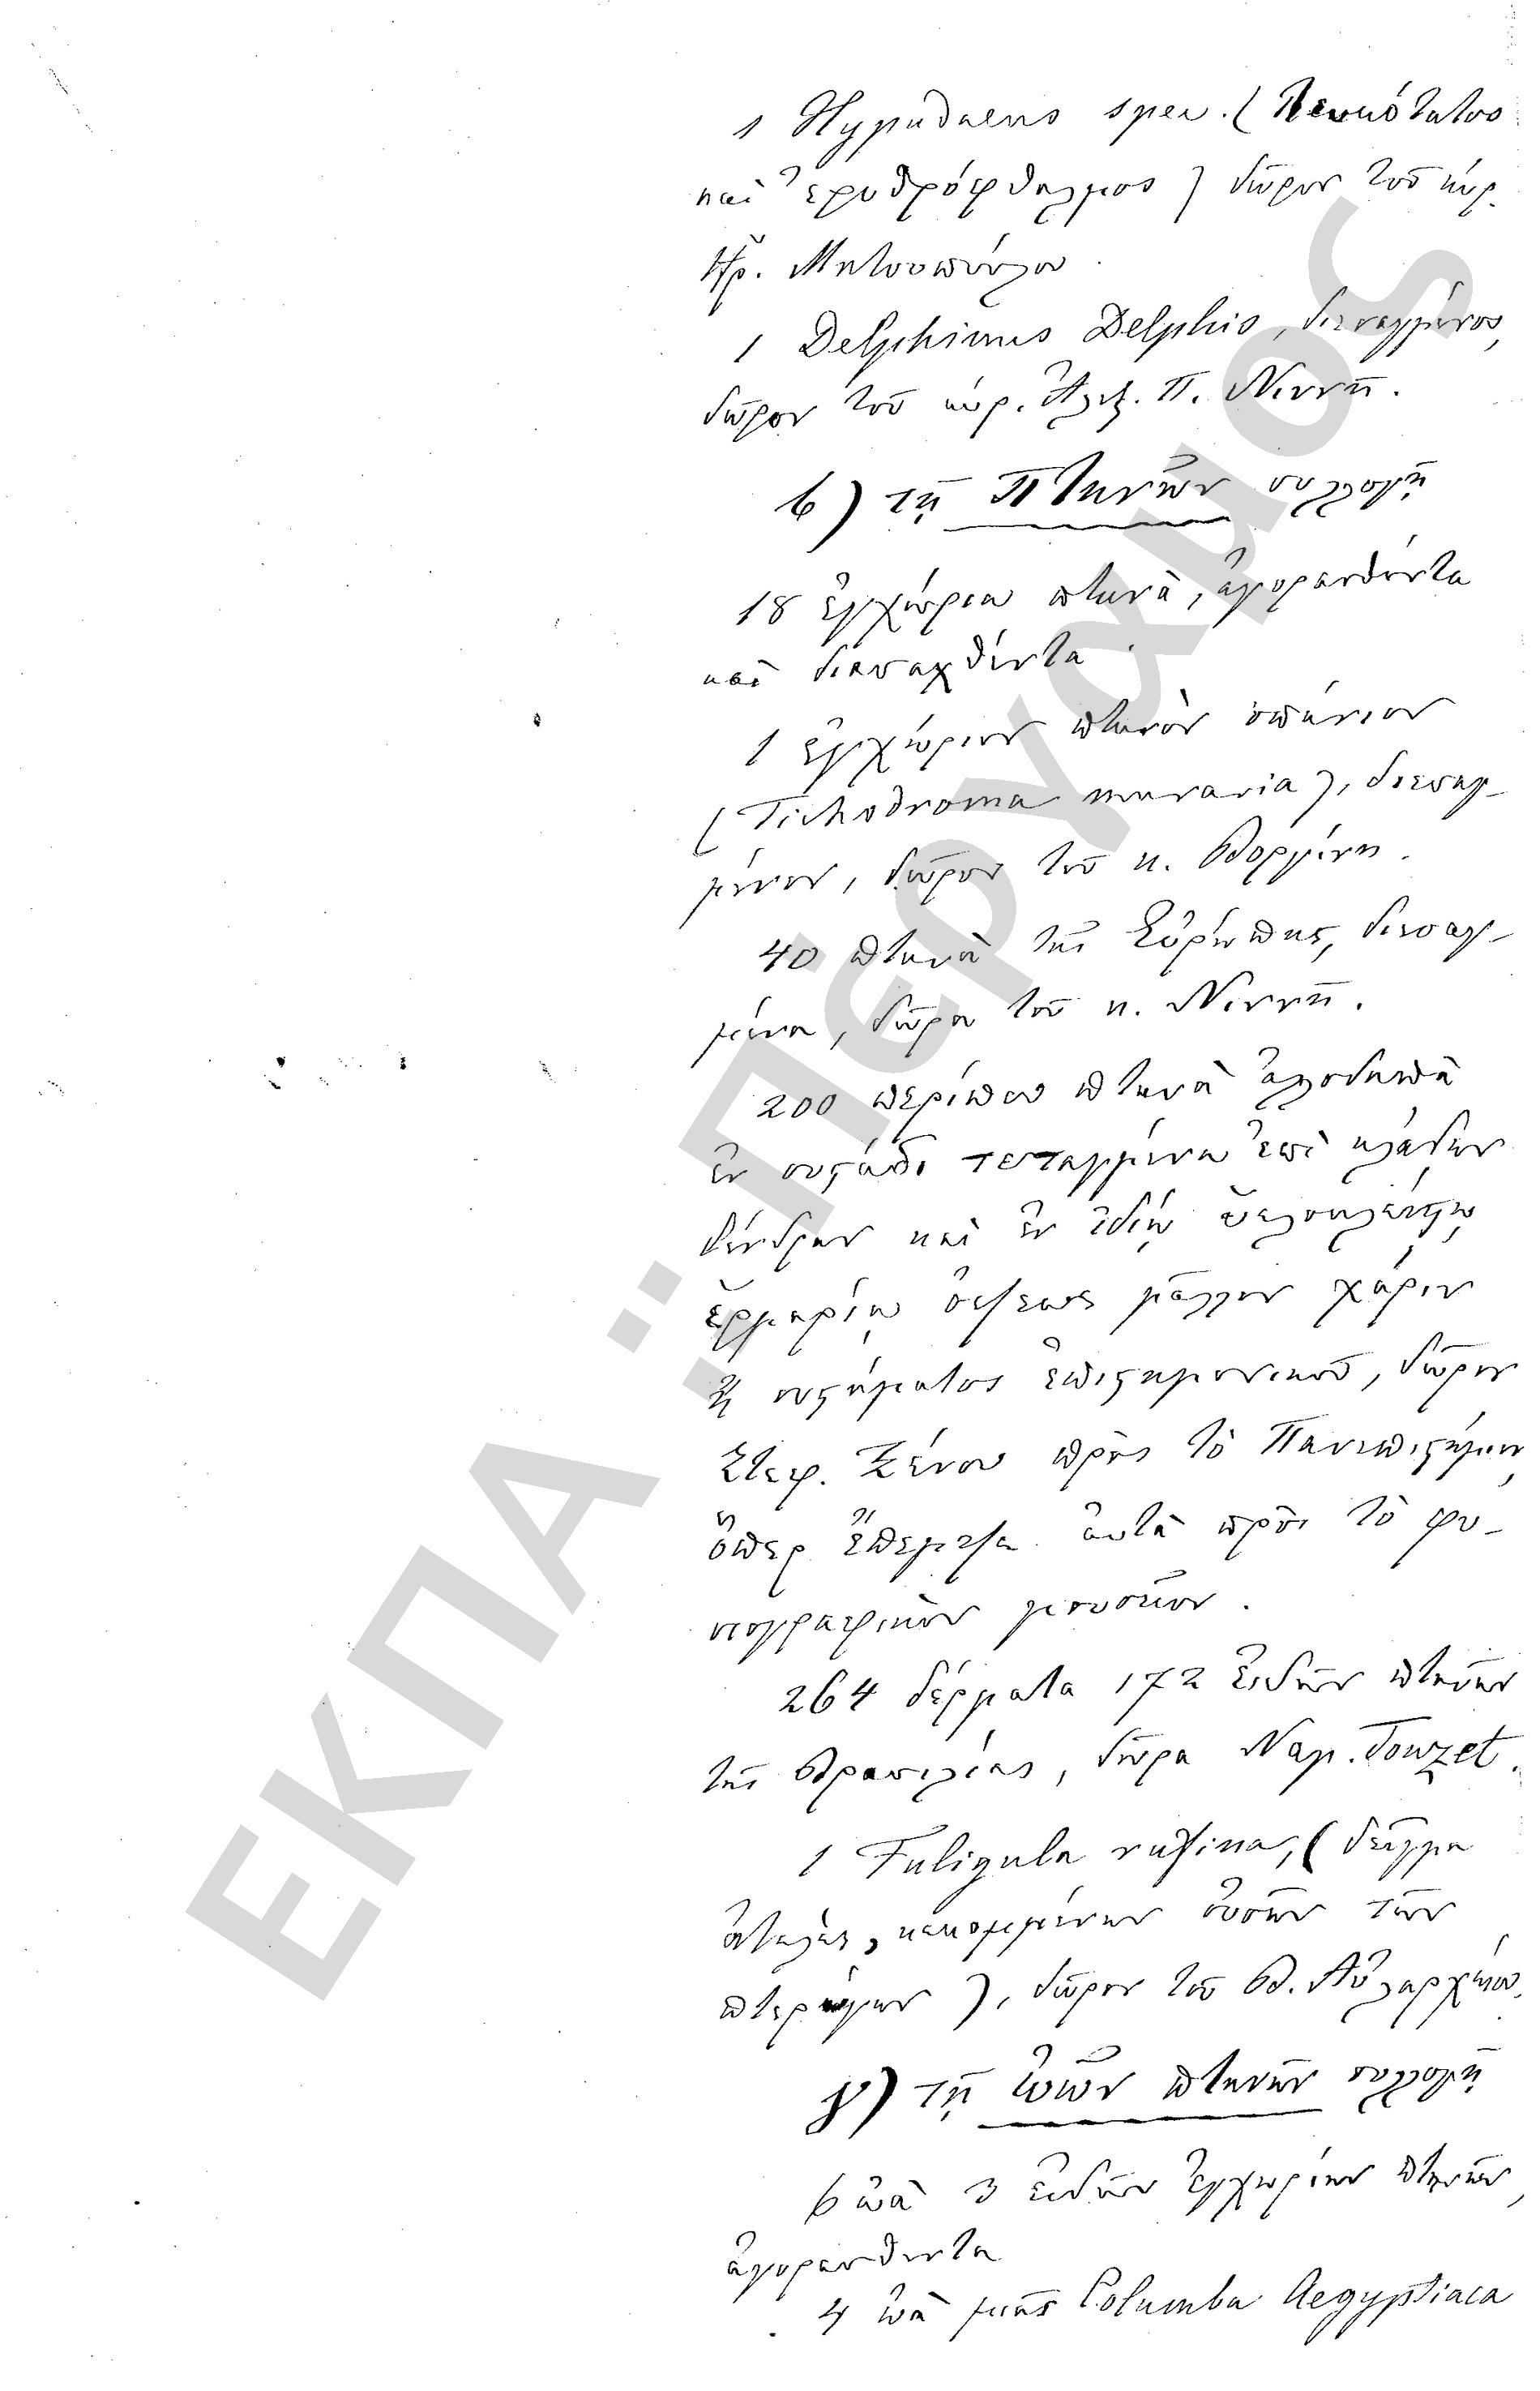 1 Hypudaeus spec. (λευκότατος
καὶ ἐρυθρόφθαλμος) δῶρον τοῦ κυρ.
Ἡρ. Μητσοπούλου.
1 Delphinus Delphis, διεσαγμένος,
δῶρον τοῦ κυρ. Ἀλεξ. Π. Νεννῆ.
β) τῇ Πτηνῶν συλλογῇ
18 ἐγχώρια πτηνὰ, ἀγορασθέντα
καὶ διασαχθέντα.
1 ἐγχώριον πτηνὸν σπάνιον
(Tichodroma muraria), διεσαγ-
μένον, δῶρον τοῦ κ.
40 πτηνὰ τῆς Εὐρώπης, διεσαγ-
μένα, δῶρα τοῦ κ. Νεννῆ.
200 περίπου πτηνὰ ἀλλοδαπὰ
ἐν συστάδι τεταγμένα ἐπὶ κλάδων
δένδρων καὶ ἐν ἰδίῳ ὑελοκλείστῳ
ἑρμαρίῳ ὄψεως μᾶλλον χάριν
ἢ συστήματος ἐπιστημονικοῦ, δῶρον
Στεφ. Ξένου πρὸς τὸ Πανεπιστήμιον,
ὅπερ ἔπεμψε αὐτὰ πρὸς τὸ φυ-
σιογραφικὸν μουσεῖον.
264 δέρματα 172 εἰδῶν πτηνῶν
τῆς Βρασιλίας, δῶρα Ναπ. Touzet.
1 Fuligula rufina, (δεῖγμα
ἀτελὲς, κεκομμένων οὐσῶν τῶν
πτερύγων), δῶρον τοῦ Θ.
γ) τῇ ὠῶν πτηνῶν συλλογῇ
6 ὠὰ 3 εἰδῶν ἐγχωρίων πτηνῶν,
ἀγορασθέντα
4 ὠὰ μιᾶς Columba Aegyptiaca
ΕΚΠΑ Πέργαμος